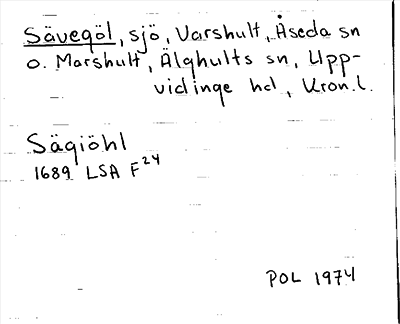 Sävegöl, sjö, Varshult, Åseda sn
o. Marshult, Älghults sn, Upp-
vidinge hd, Kron.l.
Sägiöhl
1689 LSA F24
POL 1974